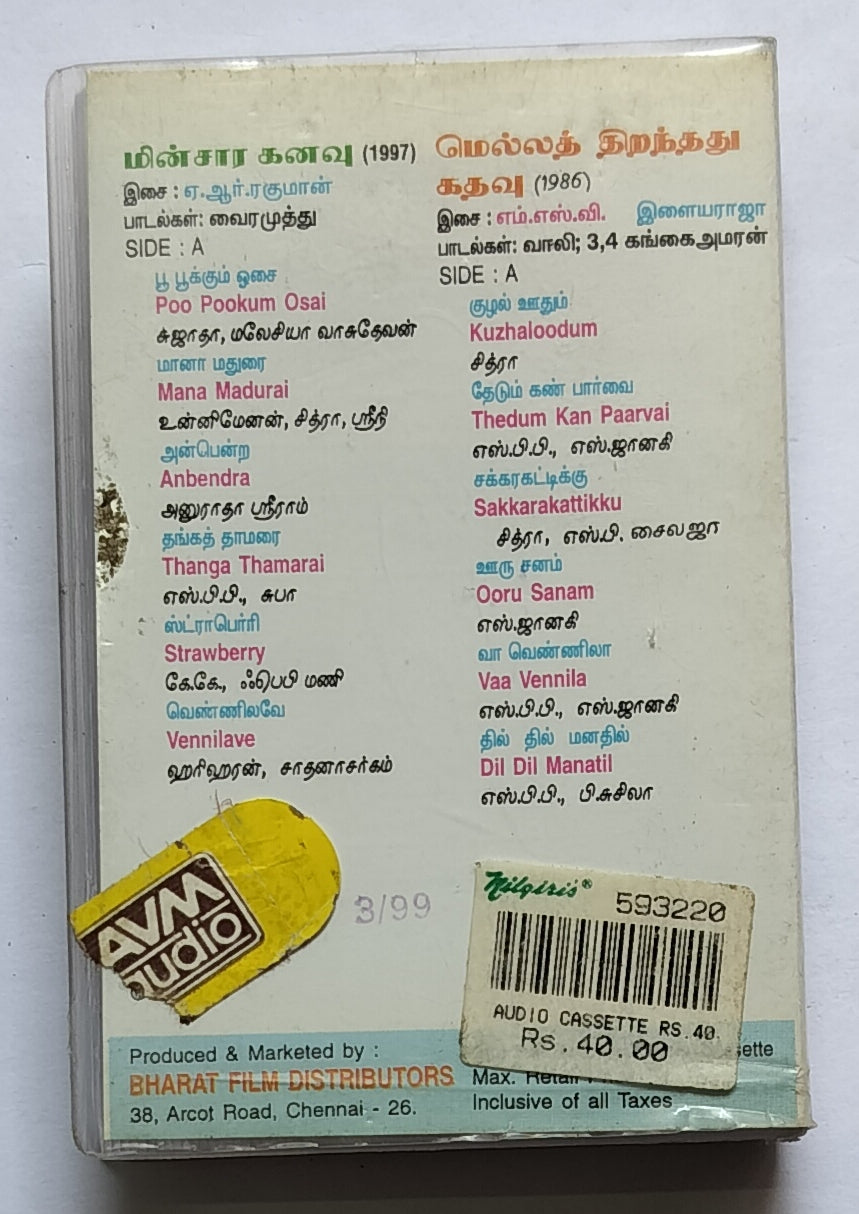 மின்சார கனவு (1997)
இசை : ஏ.ஆர்.ரகுமான்
பாடல்கள்: வைரமுத்து
SIDE : A
பூ பூக்கும் ஓசை
Poo Pookum Osai
சுஜாதா, மலேசியா வாசுதேவன்
மானா மதுரை
Mana Madurai
உன்னிமேனன், சித்ரா, ஸ்ரீநி
அன்பென்ற
Anbendra
அனுராதா ஸ்ரீராம்
தங்கத் தாமரை
Thanga Thamarai
எஸ்.பி.பி., சுபா
ஸ்ட்ராபெர்ரி
Strawberry
கே.கே., ஃபெபி மணி
வெண்ணிலவே
Vennilave
ஹரிஹரன், சாதனாசர்கம்
மெல்லத் திறந்தது
கதவு (1986)
இசை : எம்.எஸ்.வி. இளையராஜா
பாடல்கள்: வாலி; 3,4 கங்கைஅமரன்
SIDE : A
குழல் ஊதும்
Kuzhaloodum
சித்ரா
தேடும் கண் பார்வை
Thedum Kan Paarvai
எஸ்.பி.பி., எஸ்.ஜானகி
சக்கரகட்டிக்கு
Sakkarakattikku
சித்ரா, எஸ்.பி. சைலஜா
ஊரு சனம்
Ooru Sanam
எஸ்.ஜானகி
வா வெண்ணிலா
Vaa Vennila
எஸ்.பி.பி., எஸ்.ஜானகி
தில் தில் மனதில்
Dil Dil Manatil
எஸ்.பி.பி., பி.சுசிலா
AVM
audio
3/99
Nilgiris® 593220
AUDIO CASSETTE RS.40.
Rs.40.00
Produced & Marketed by :
BHARAT FILM DISTRIBUTORS
38, Arcot Road, Chennai - 26.
Max. Retail
Inclusive of all Taxes